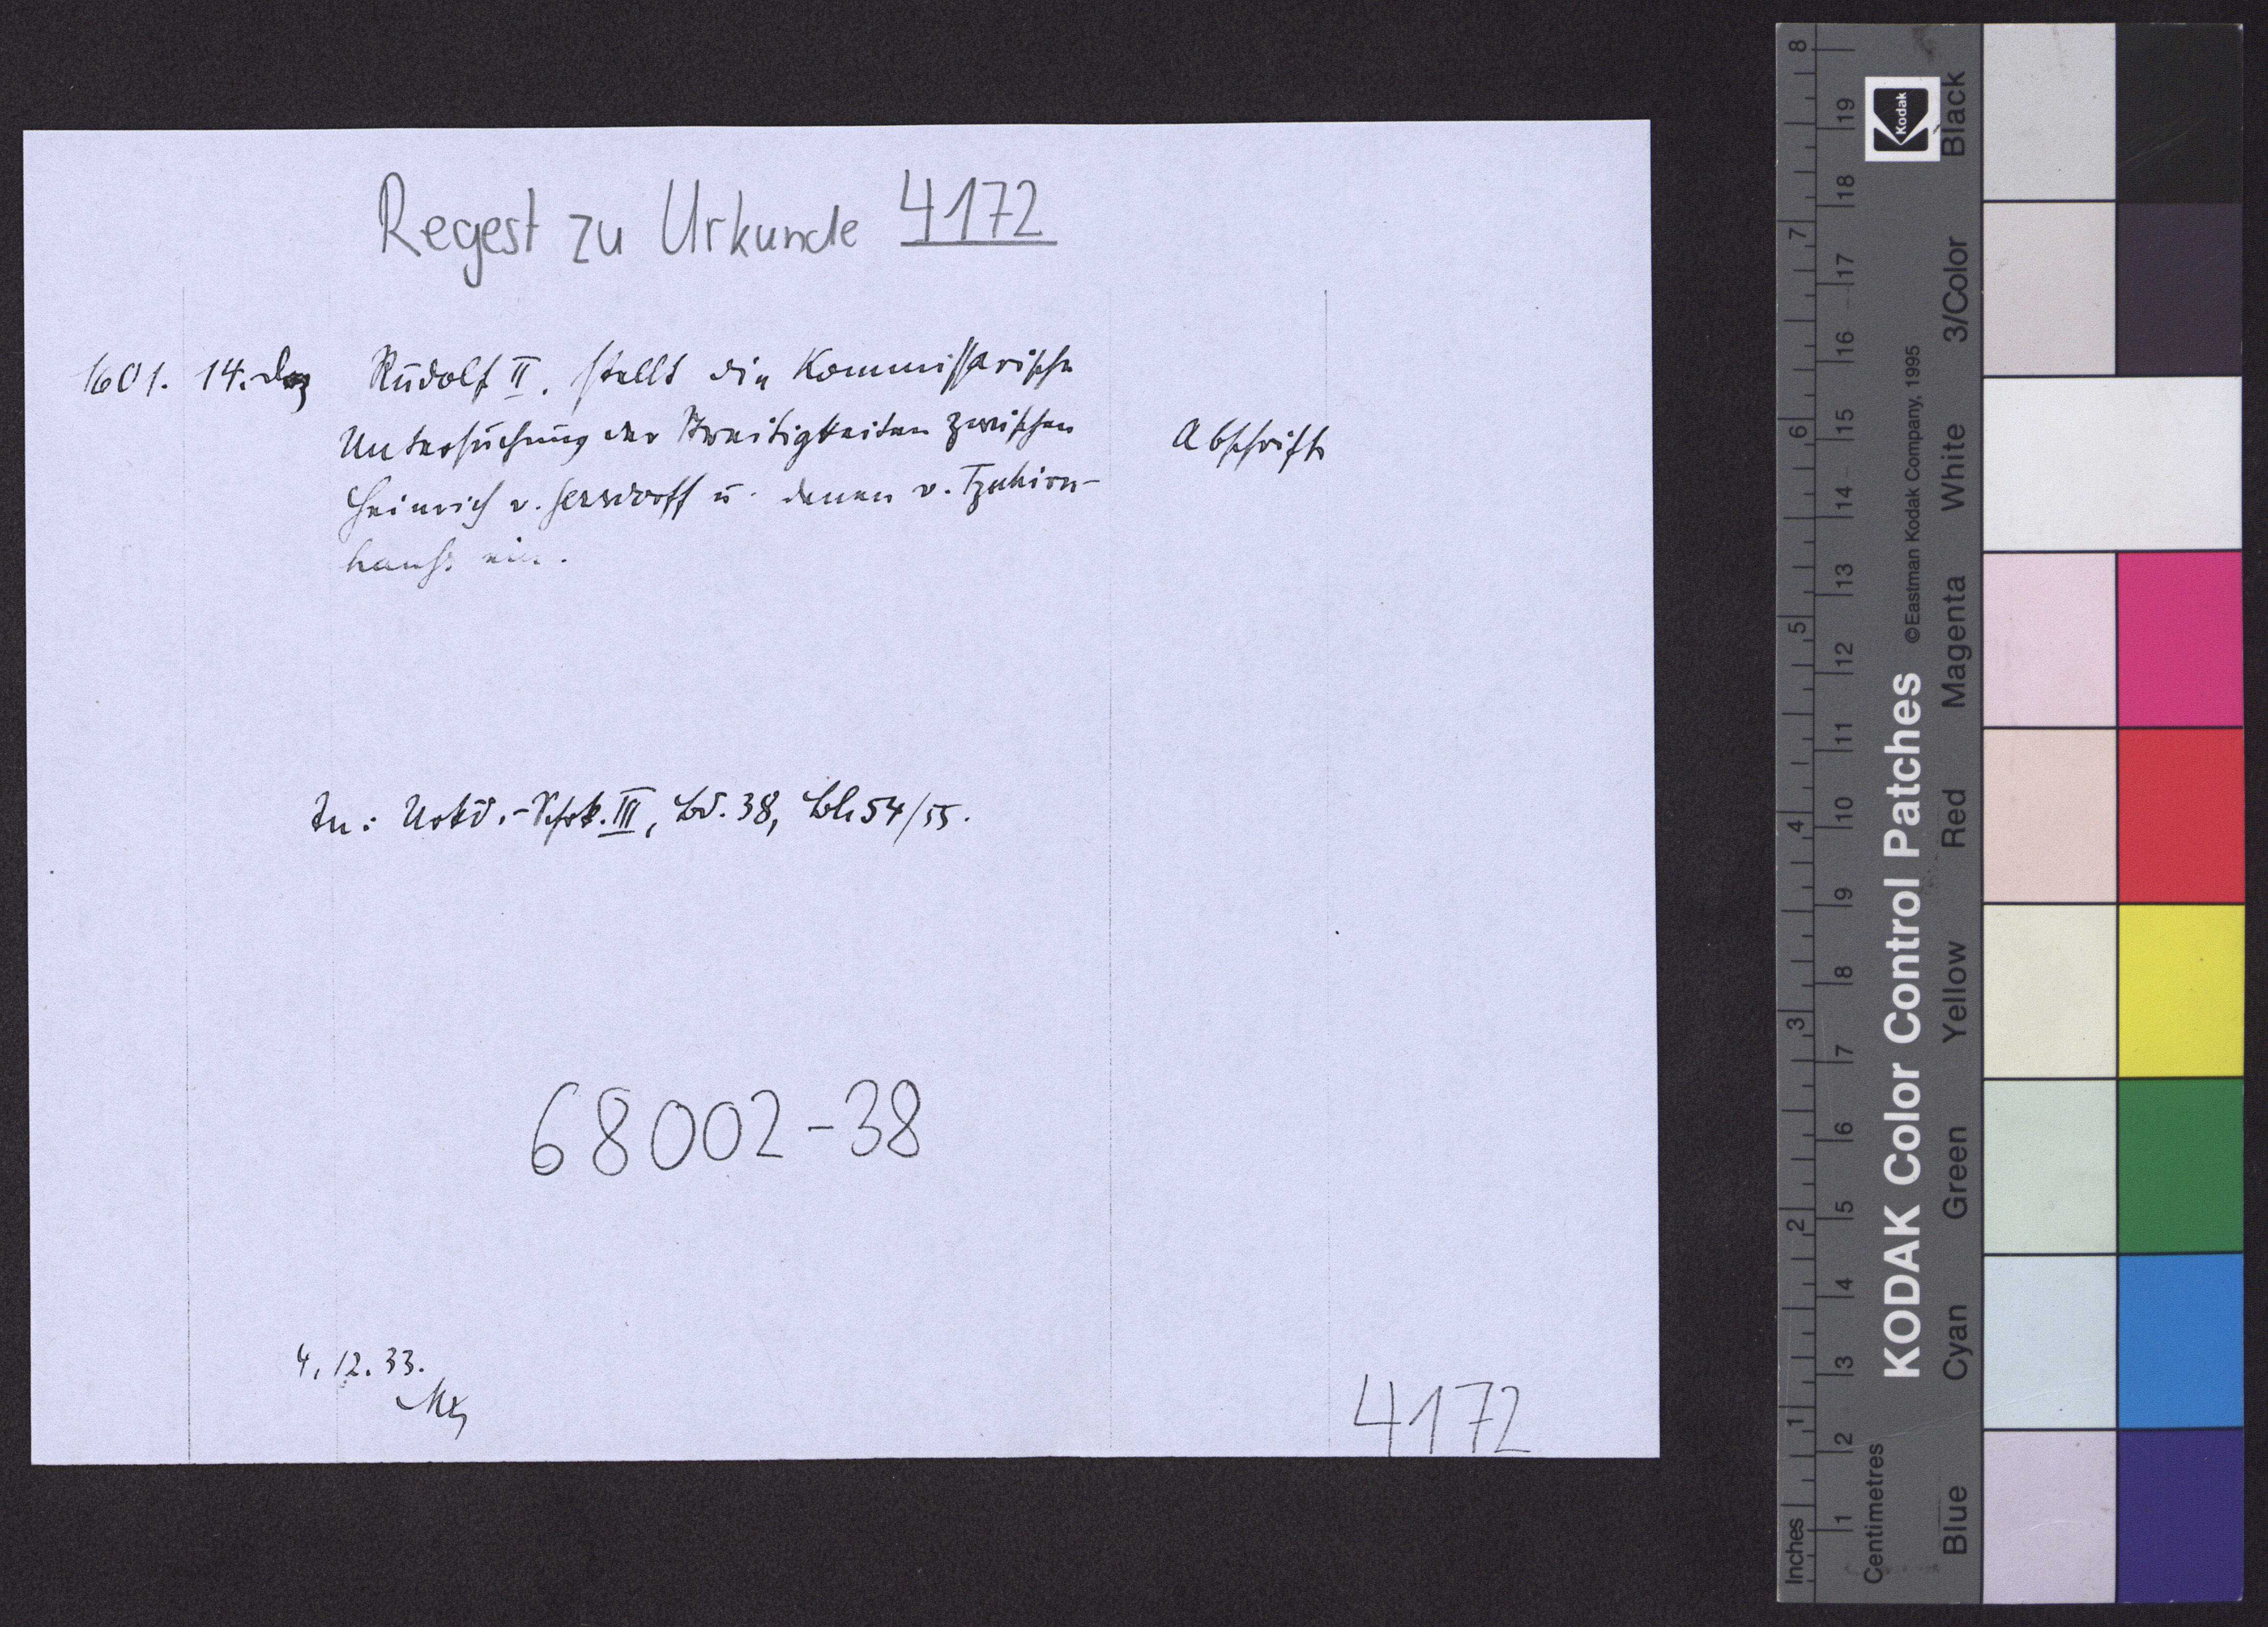 Regest zu Urkunde 4172
1601. 14. Dez Rudolf II. stellt die Kommissarische
Untersuchung der Streitigkeiten zwischen
Abschrift
Heinrich v. Gersdorff u. denen v. Tzschirn-
haus. ein.
In: Urkd.-Schr. III, Bd. 38, Bl. 54/55.
68002-38
4.12.33.
4172
Inches 1 2 3 4 5 6 7 8
Centimetres 1 2 3 4 5 6 7 8 9 10 11 12 13 14 15 16 17 18 19
KODAK Color Control Patches ©Eastman Kodak Company, 1995
Kodak
Blue Cyan Green Yellow Red Magenta White 3/Color Black